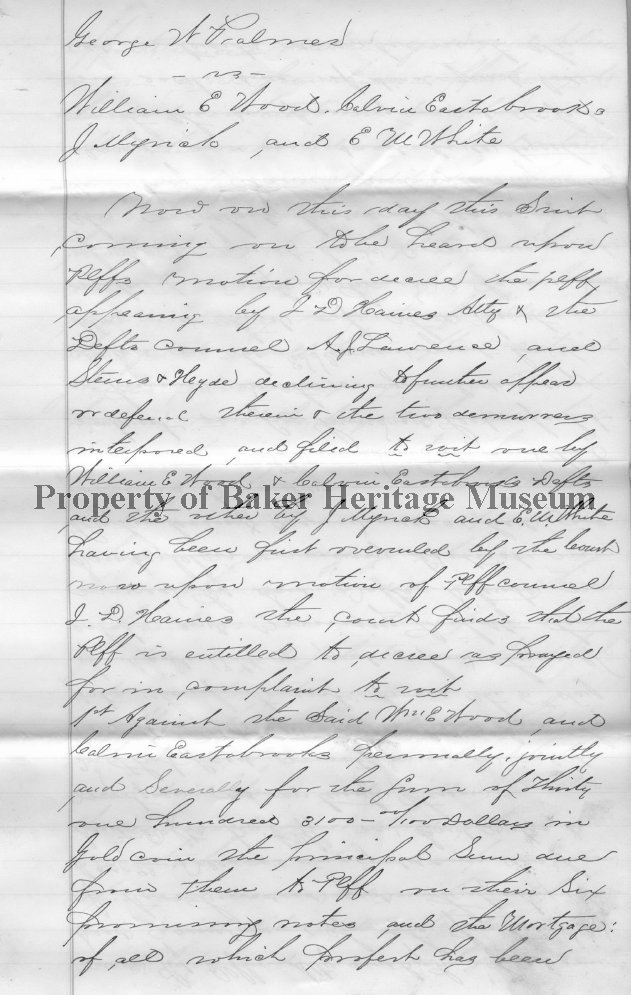 George W
- vs -
William E Wood. Calvin Eastabrooks
J Myrick and E M White
Now on this day this Suit
coming on to be heard upon
Plffs motion for decree the plff
appearing by I D Haines Atty & the
Defts Counsel A. J. Lawrence and
& Heyde declining to further appear
or defend therein & the two demurrers
interposed and filed to wit one by
William E Wood & Calvin Eastabrooks Defts
Property of Baker Heritage Museum
and the other by J Myrick and E. M. White
having been first overruled by the Court
now upon motion of Plff counsel
I. D. Haines the court finds that the
Plff is entitled to decree as prayed
for in complaint to wit
1st Against the Said Wm E Wood and
Calvin Eastabrooks personally, jointly
and Severally for the Sum of Thirty
one hundred 3100 - 00/100 Dollars in
Gold coin the principal Sum due
from them to Plff on their Six
promissory notes and the Mortgage:
of all which profert has been